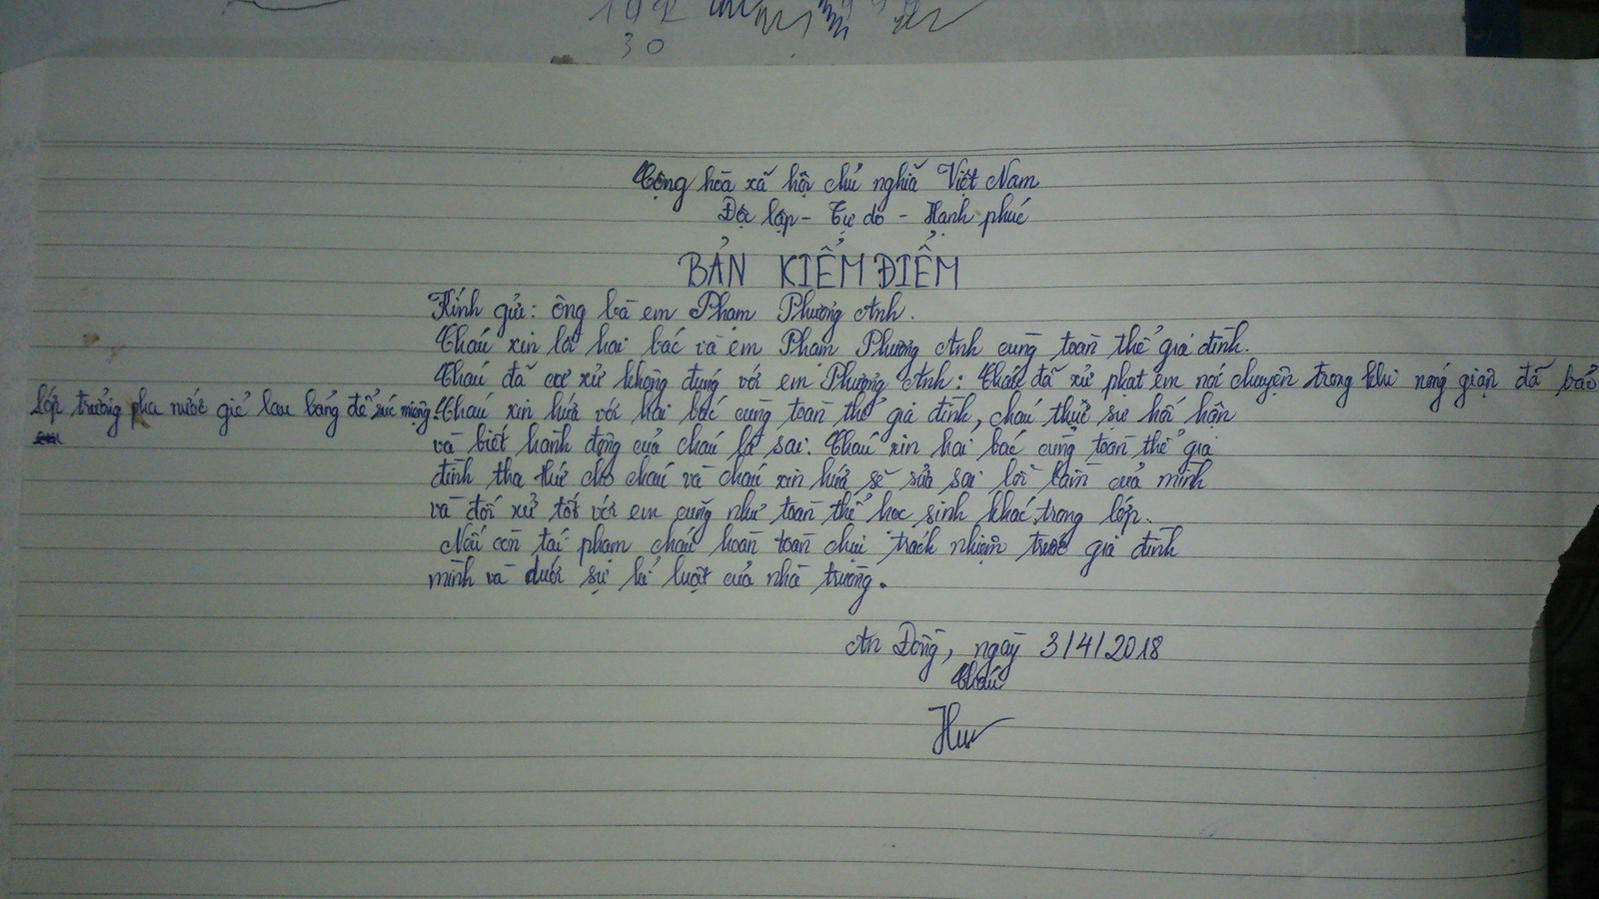 192
30
Cộng hòa xã hội chủ nghĩa Việt Nam
Độc lập - Tự do - Hạnh phúc
BẢN KIỂM ĐIỂM
Kính gửi: ông bà em Phạm Phương Anh.
Cháu xin lỗi hai bác và em Phạm Phương Anh cùng toàn thể gia đình.
Cháu đã cư xử không đúng với em Phương Anh: Cháu đã xử phạt em nói chuyện trong khi nóng giận đã bảo
lớp trưởng pha nước giẻ lau bảng để súc miệng. Cháu xin hứa với hai bác cùng toàn thể gia đình, cháu thực sự hối hận
và biết hành động của cháu là sai. Cháu xin hai bác cùng toàn thể gia
đình tha thứ cho cháu và cháu xin hứa sẽ sửa sai lỗi lầm của mình
và đối xử tốt với em cũng như toàn thể học sinh khác trong lớp.
Nếu còn tái phạm cháu hoàn toàn chịu trách nhiệm trước gia đình
mình và dưới sự kỉ luật của nhà trường.
An Đồng, ngày 3/4/2018
Cháu